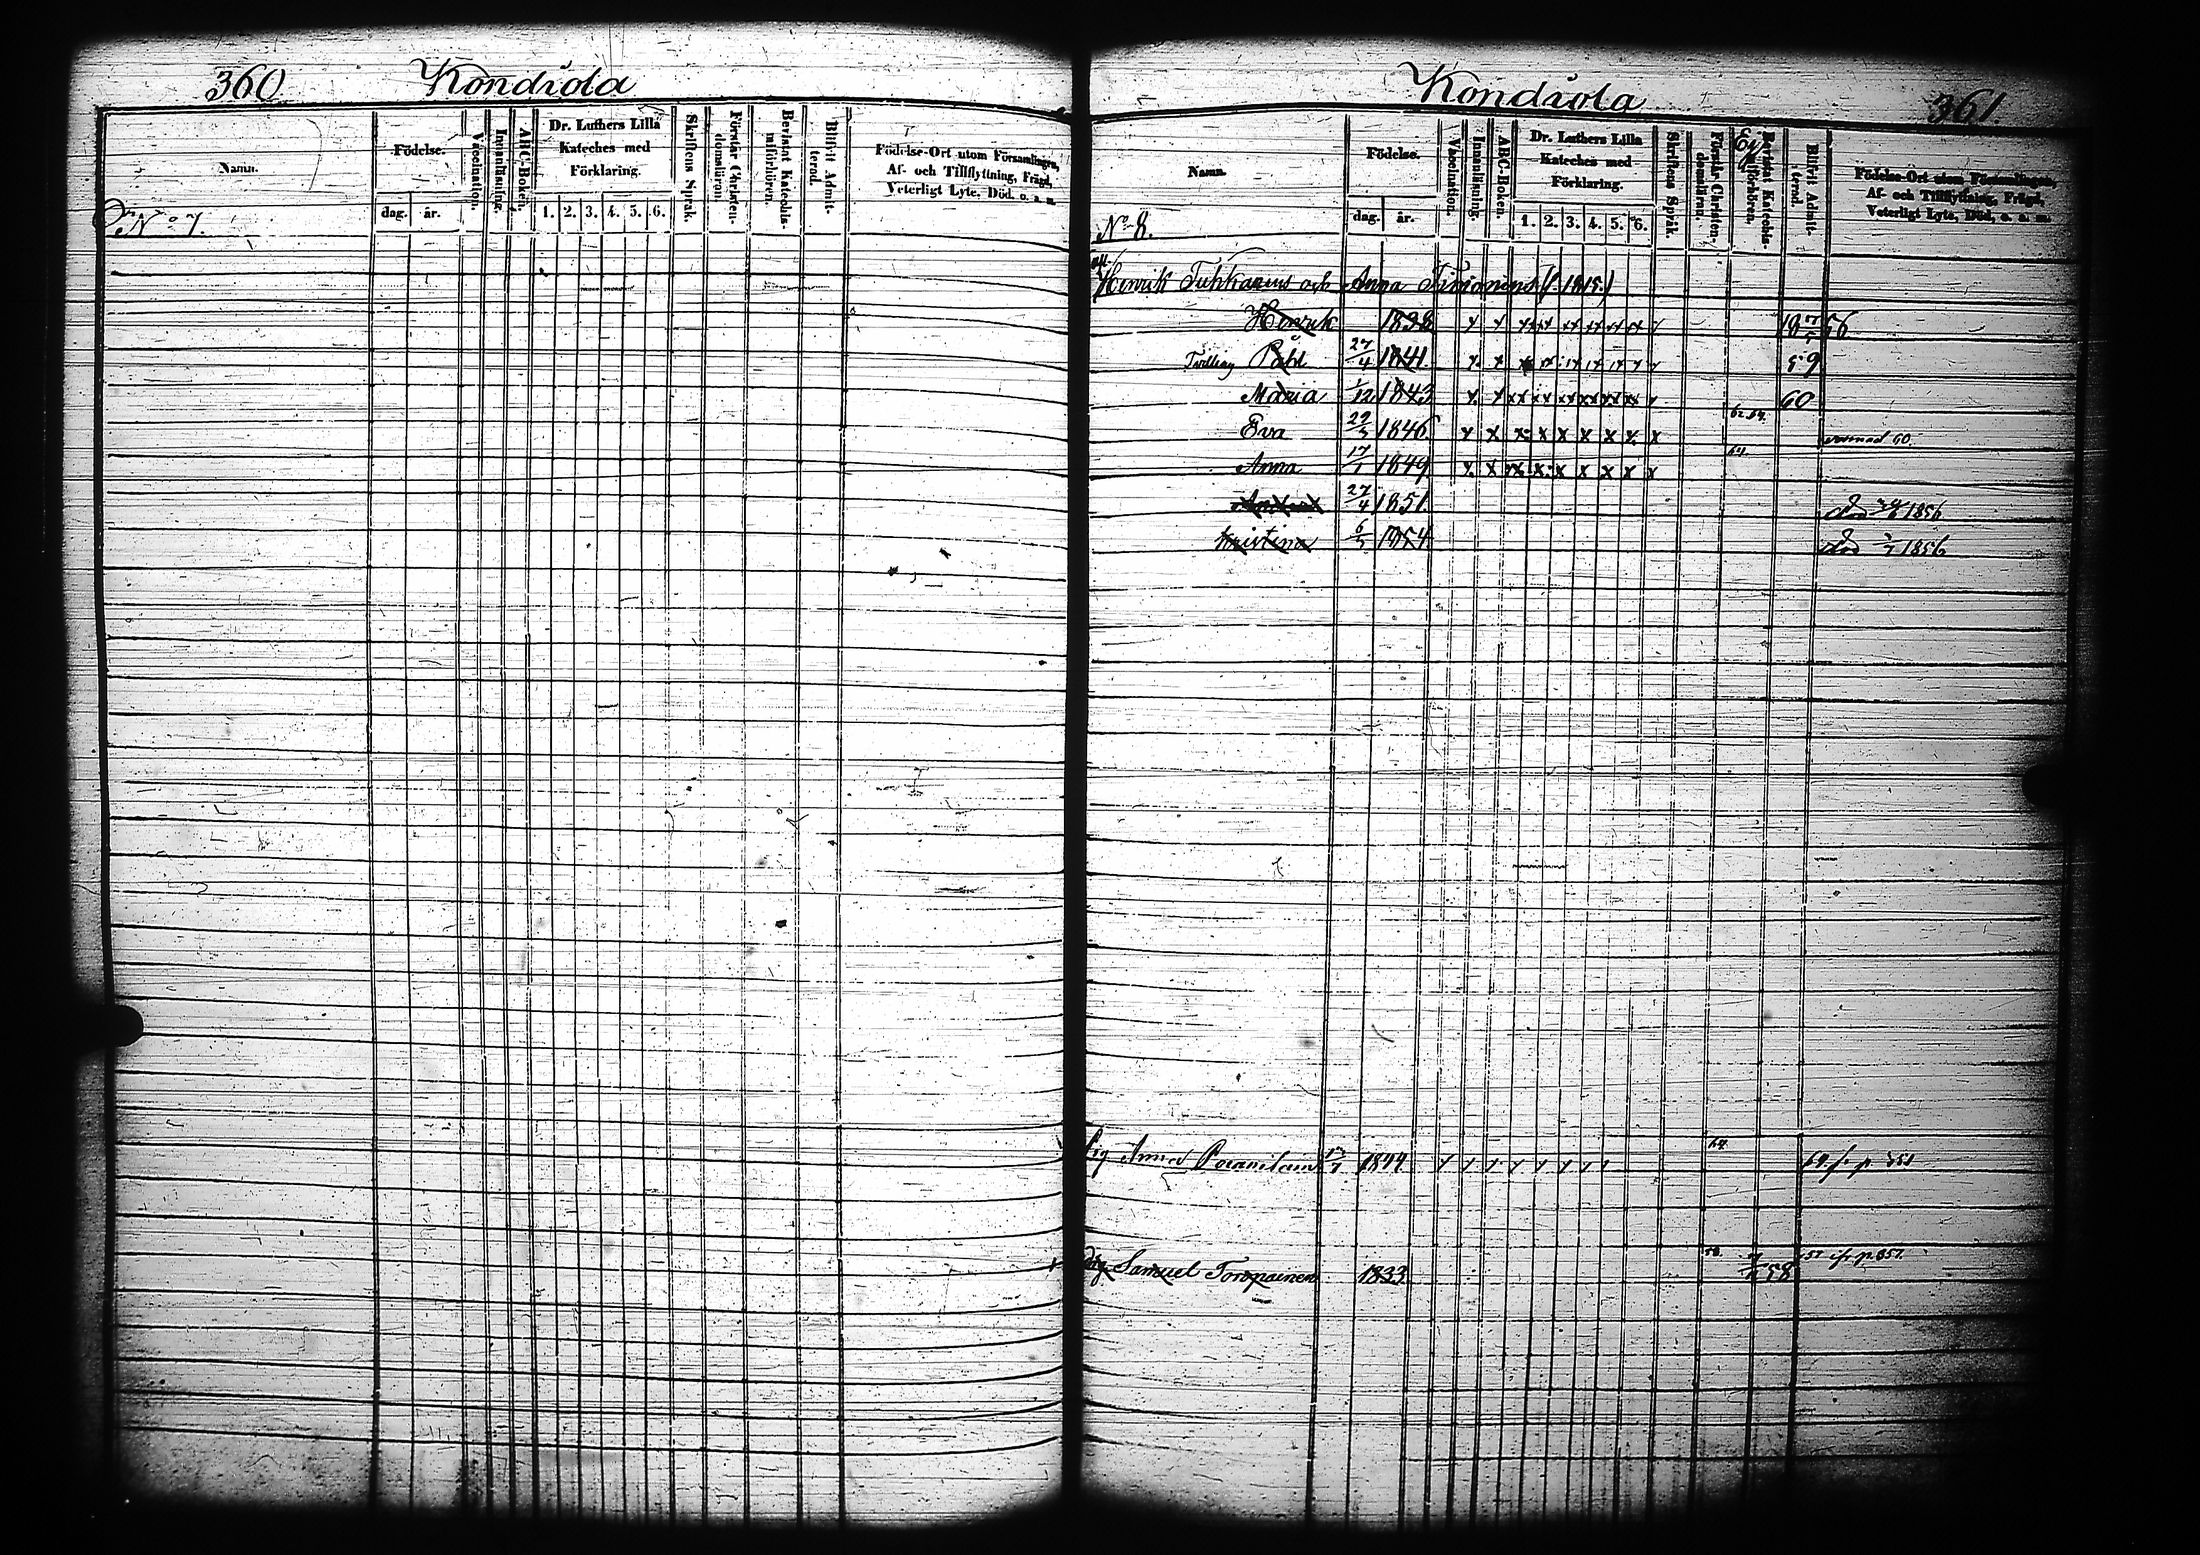 360 Kondiola
Namn.
Födelse.
dag. år.
Vaccination.
Innanläsning.
ABC-Boken.
Dr. Luthers Lilla
Kateches med
Förklaring.
1. 2. 3. 4. 5. 6.
Skriftens Språk.
Förstår Christen-
domsläran.
Bevistat Katechis-
miförhören.
Blifvit Admit-
terad.
Födelse-Ort utom Församlingen,
Af- och Tillflyttning, Frägd,
Veterligt Lyte, Död, o. s. m.
No 7.
Kondiola 361
Namn.
Födelse.
dag. år.
Vaccination.
Innanläsning.
ABC-Boken.
Dr. Luthers Lilla
Kateches med
Förklaring.
1. 2. 3. 4. 5. 6.
Skriftens Språk.
Förstår Christen-
domsläran.
Bevistat Katechis-
miförhören.
Blifvit Admit-
terad.
Födelse-Ort utom Församlingen,
Af- och Tillflyttning, Frägd,
Veterligt Lyte, Död, o. s. m.
No 8.
Henrik och Anna (f. 1815.)
Henrik 1838 56
Påhl 27/4 1841 59
Maria 1/12 1843 60
Eva 1846 62. 64.
Anna 17/1 1849 64.
27/4 1851. död 1856
Kristina 1854 död 1856
Pig Anna 1844 64. 64. fr. p. 351
Drg Samuel Toropainen 1833 58. 58 57 ifr. p. 357.